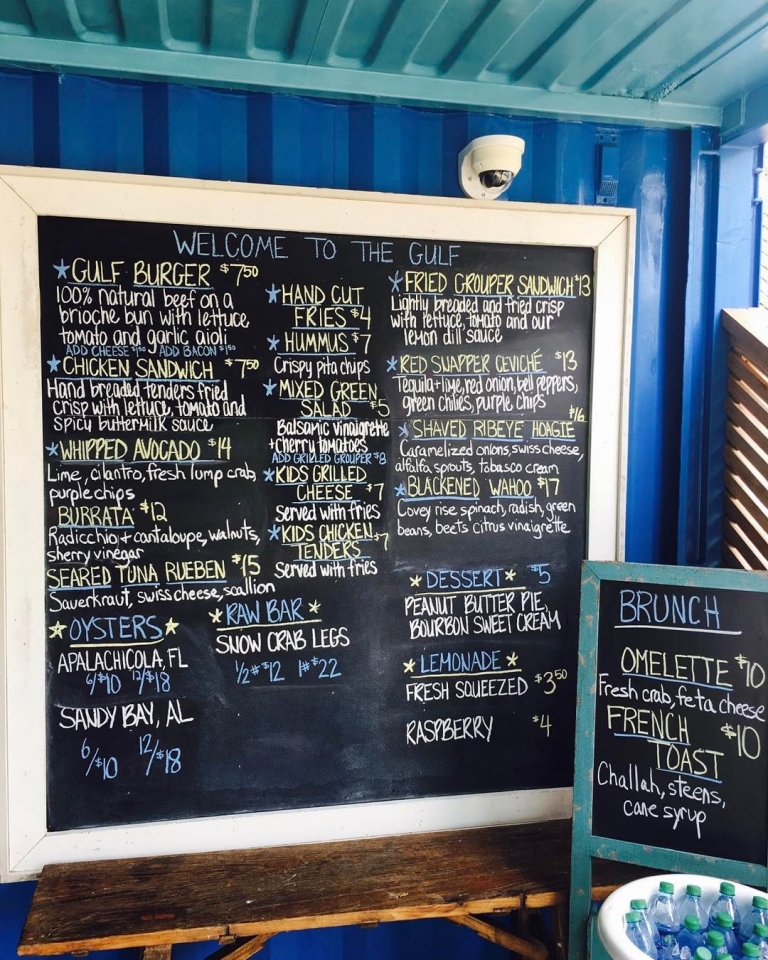 WELCOME TO THE GULF
★GULF BURGER $7.50
100% natural beef on a
brioche bun with lettuce
tomato and garlic aioli
ADD CHEESE $1.50 ADD BACON $1.50
★CHICKEN SANDWICH $7.50
Hand breaded tenders fried
crisp with lettuce, tomato and
spicy buttermilk sauce
★WHIPPED AVOCADO $14
Lime, cilantro, fresh lump crab,
purple chips
BURRATA $12
Radicchio + cantaloupe, walnuts,
sherry vinegar
SEARED TUNA RUEBEN $15
Sauerkraut, swiss cheese, scallion
★OYSTERS★
APALACHICOLA, FL
6/$10 12/$18
SANDY BAY, AL
6/$10 12/$18
★HAND CUT
FRIES $4
★HUMMUS $7
Crispy pita chips
★MIXED GREEN
SALAD $5
Balsamic vinaigrette
+cherry tomatoes
ADD GRILLED GROUPER $8
★KIDS GRILLED
CHEESE $7
Served with fries
★KIDS CHICKEN
TENDERS $7
Served with fries
★RAW BAR★
SNOW CRAB LEGS
½# $12 1# $22
★FRIED GROUPER SANDWICH $13
Lightly breaded and fried crisp
with lettuce, tomato and our
lemon dill sauce
★RED SNAPPER CEVICHÉ $13
Tequila + lime, red onion, bell peppers,
green chilies, purple chips
★SHAVED RIBEYE HOAGIE $16
Caramelized onions, swiss cheese,
alfalfa sprouts, tobasco cream
★BLACKENED WAHOO $17
Covey rise spinach, radish, green
beans, beets citrus vinaigrette
★DESSERT★ $5
PEANUT BUTTER PIE,
BOURBON SWEET CREAM
★LEMONADE★
FRESH SQUEEZED $3.50
RASPBERRY $4
BRUNCH
OMELETTE $10
Fresh crab, feta cheese
FRENCH
TOAST $10
Challah, steens,
cane syrup